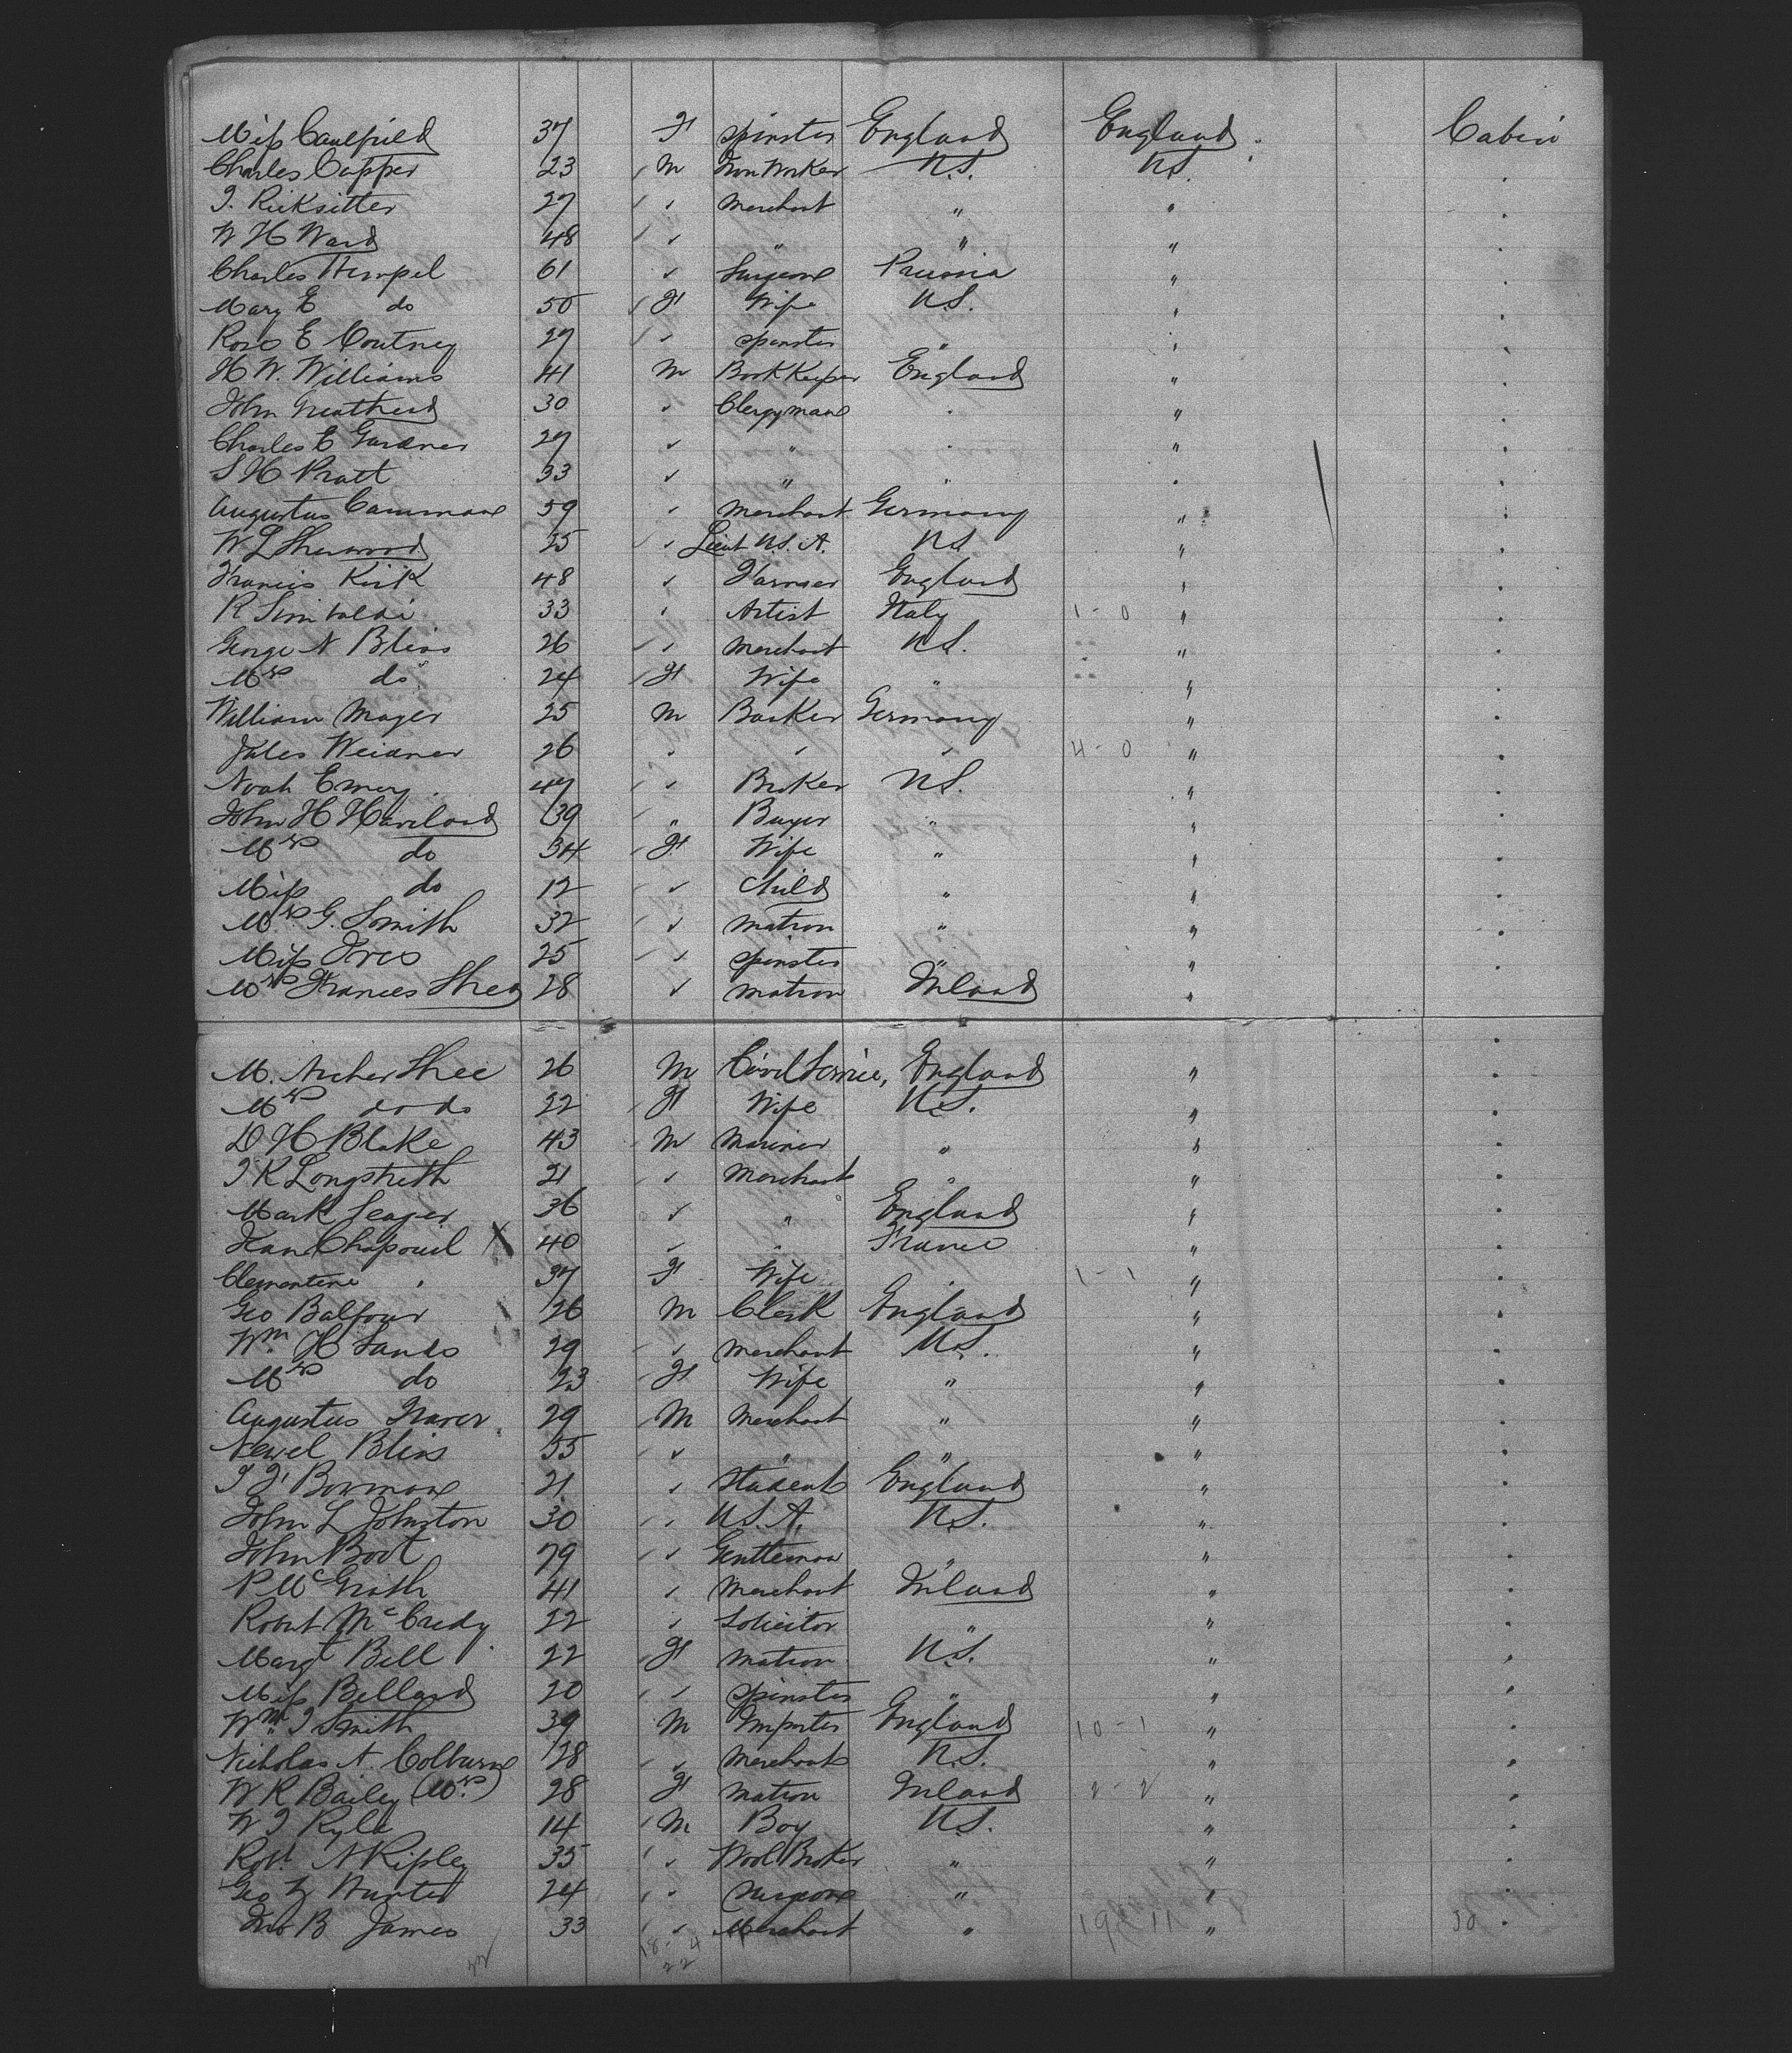 Miss Caulfield 37 F Spinster England England Cabin
Charles Capper 23 M Iron Worker U.S. U.S.
J. Ricksitter 27 " Merchant " "
W H Ward 48 " " " "
Charles Hempel 61 " Surgeon Prussia "
Mary E do 50 F Wife U.S. "
Rose E Coutney 27 " Spinster " "
H W. Williams 41 M Book Keeper England "
John Greatherd 30 " Clergyman " "
Charles E Gardner 27 " " " "
S H Pratt 33 " " " "
Augustus Cammann 59 " Merchant Germany "
W L Sherwood 25 " Lieut U.S.A. U.S. "
Francis Kirk 48 " Farmer England "
R Sinibaldi 33 " Artist Italy 1-0 "
George N Bliss 26 " Merchant U.S. "
Mrs do 24 F Wife " "
William Mager 25 M Banker Germany "
Jules Weidner 26 " " " 4-0 "
Noah Emery 47 " Broker U.S. "
John H Haviland 39 " Buyer " "
Mrs do 34 F Wife " "
Miss do 12 " Child " "
Mrs G. Smith 32 " Matron " "
Miss Ives 25 " Spinster " "
Mrs Frances Shea 28 " Matron Ireland "
M. Archer Shee 26 M Civil Service, England "
Mrs do do 22 F Wife U.S. "
D H Blake 43 M Mariner " "
J K Longstreth 21 " Merchant " "
Mark Seager 36 " " England "
Jean Chapouil X 40 " " France "
Clementine " 37 F Wife " 1-1 "
Geo Balfour 26 M Clerk England "
Wm. H Sands 29 " Merchant U.S. "
Mrs do 23 F Wife " "
Augustus 29 M Merchant " "
Newel Bliss 55 " " " "
J F Bowman 21 " Student England "
John L Johnston 30 " U.S.A. U.S. "
John Boot 79 " Gentleman " "
P McGrath 41 " Merchant Ireland "
Robert McCredy 22 " Solicitor " "
Margt Bell 22 F Matron U.S. "
Miss Bellard 20 " Spinster " "
Wm. J Smith 39 M Importer England 10-1 "
Nicholas A. Colburn 28 " Merchant U.S. "
W R Bailey (Mrs) 28 F Matron Ireland 2-2 "
W J Ryle 14 M Boy U.S. "
Robt. A Ripley 35 " Wool Broker " "
Geo Hunter 24 " Surgeon " "
Jno B James 33 " Merchant " 19 11 " 50
18-4
22